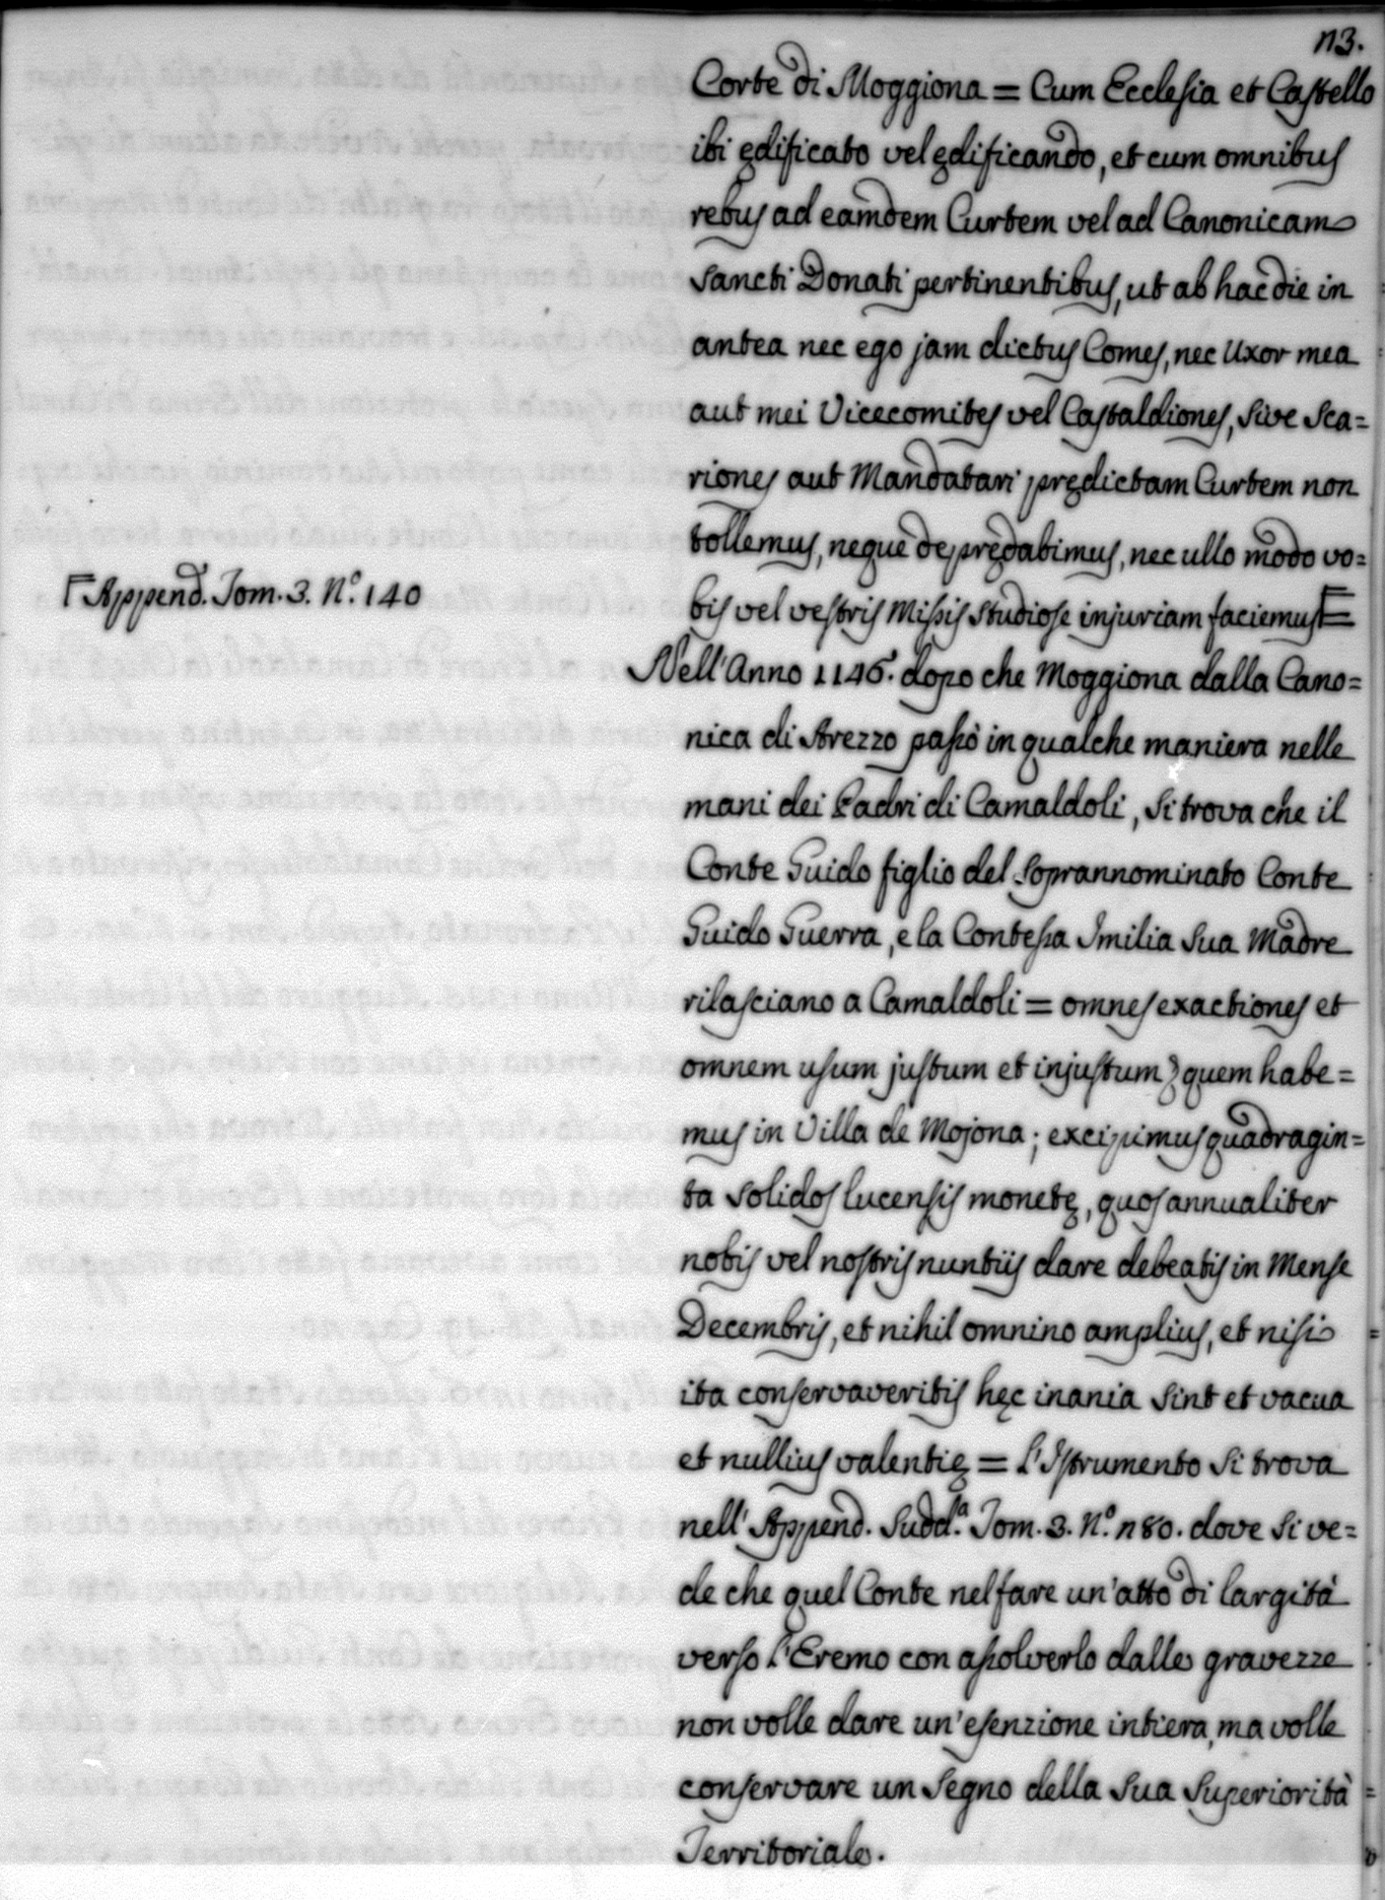 113.
Corte di Moggiona = Cum Ecclesia et Castello
ibi ędificato vel ędificando, et cum omnibus
rebus ad eamdem Curtem vel ad Canonicam
Sancti Donati pertinentibus, ut ab hac die in
antea nec ego jam dictus Comes, nec Uxor mea
aut mei Vicecomites vel Castaldiones, sive Sca=
riones aut Mandatari prędictam Curtem non
tollemus, neque deprędabimus, nec ullo modo vo=
bis vel vestris Missis studiose injuriam faciemus =
Γ Append. Tom. 3. N.º 140
Nell'Anno 1146. dopo che Moggiona dalla Cano=
nica di Arezzo passò in qualche maniera nelle
mani dei Padri di Camaldoli, si trova che il
Conte Guido figlio del soprannominato Conte
Guido Guerra, e la Contessa Imilia sua Madre
rilasciano a Camaldoli = omnes exactiones et
omnem usum justum et injustum quem habe=
mus in Villa de Mojona; excipimus quadragin=
ta solidos lucensis monetę, quos annualiter
nobis vel nostris nuntiis dare debeatis in Mense
Decembris, et nihil omnino amplius, et nisi
ita conservaveritis hęc inania sint et vacua
et nullius valentię = L'Istrumento si trova
nell'Append. Sudd.ª Tom. 3. N.º 180. dove si ve=
de che quel Conte nel fare un'atto di largità
verso l'Eremo con assolverlo dalle gravezze
non volle dare un'esenzione intiera, ma volle
conservare un segno della sua Superiorità
Territoriale.